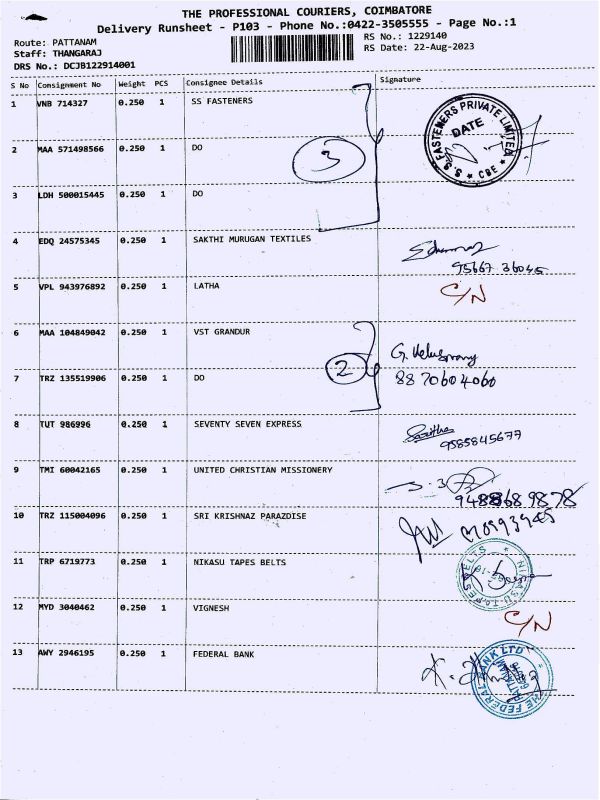 THE PROFESSIONAL COURIERS, COIMBATORE
Delivery Runsheet - P103 - Phone No.:0422-3505555 - Page No.:1
Route: PATTANAM
RS No.: 1229140
Staff: THANGARAJ
RS Date: 22-Aug-2023
DRS No.: DCJB122914001
S No Consignment No Weight PCS Consignee Details Signature
1 VNB 714327 0.250 1 SS FASTENERS
S.S. FASTENERS PRIVATE LIMITED
DATE
CBE
2 MAA 571498566 0.250 1 DO
3
3 LDH 500015445 0.250 1 DO
4 EDQ 24575345 0.250 1 SAKTHI MURUGAN TEXTILES
95667 36045
5 VPL 943976892 0.250 1 LATHA C/N
6 MAA 104849042 0.250 1 VST GRANDUR
2
7 TRZ 135519906 0.250 1 DO 8870604060
8 TUT 986996 0.250 1 SEVENTY SEVEN EXPRESS
9585845677
9 TMI 60042165 0.250 1 UNITED CHRISTIAN MISSIONERY
10 TRZ 115004096 0.250 1 SRI KRISHNAZ PARAZDISE
11 TRP 6719773 0.250 1 NIKASU TAPES BELTS
12 MYD 3040462 0.250 1 VIGNESH C/N
13 AWY 2946195 0.250 1 FEDERAL BANK
THE FEDERAL BANK LTD